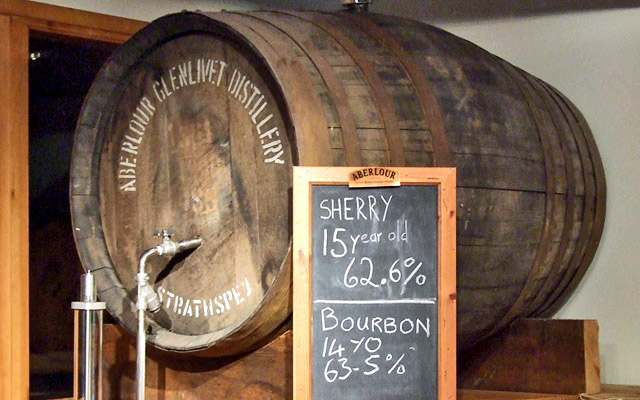 ABERLOUR GLENLIVET DISTILLERY
STRATHSPEY
ABERLOUR
SHERRY
15 year old
62.6%
BOURBON
14 YO
63-5%